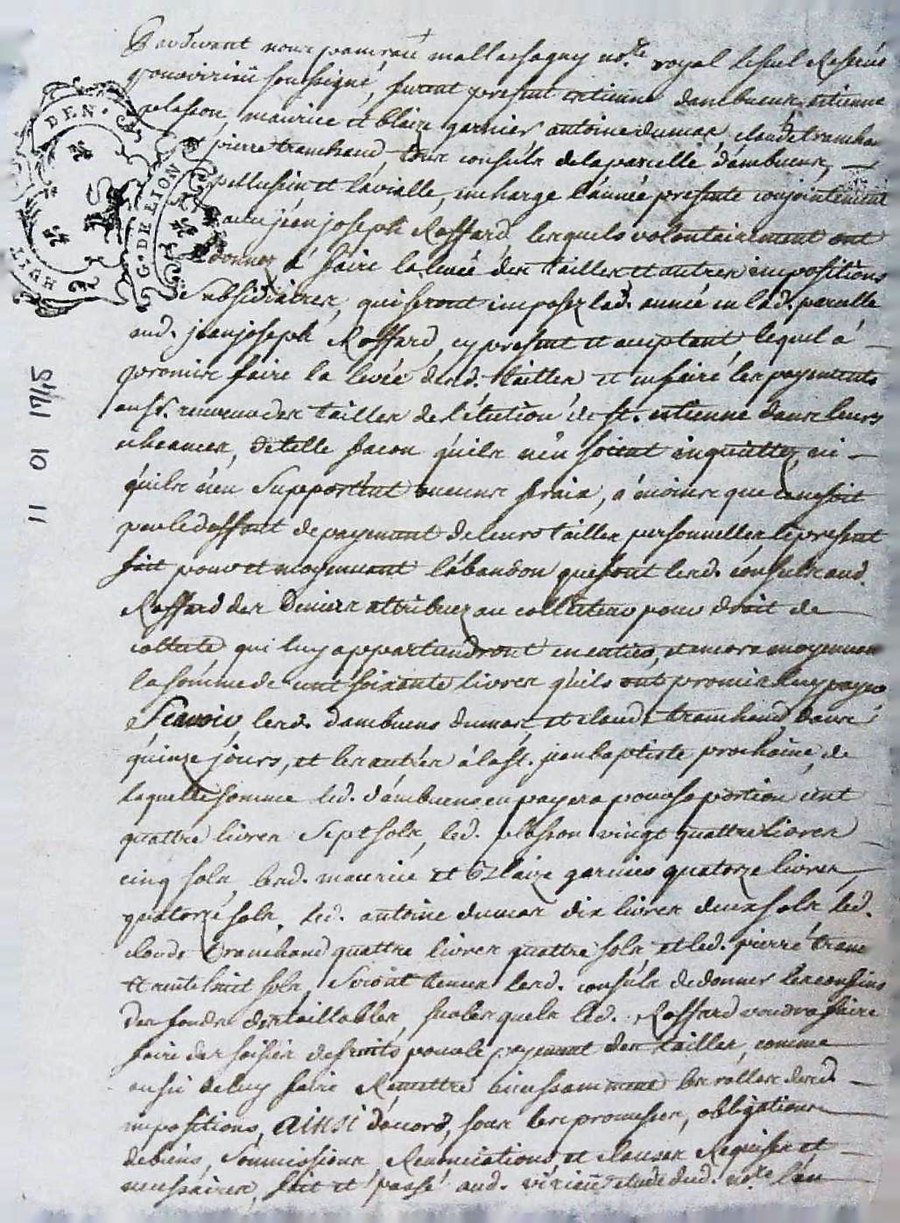 Pardevant nous jean mallassagny no.re royal le seul Reservé
furent present estienne dambuenr, estienne
plasson, maurice et blaize garnier antoine dumas claude tranchan
pierre tranchand, tous consuls dela parcelle dambuenr,
pellussin et lavialle, en charge lannée presente conjointement
avec jean joseph Roffard, lesquels volontairement ont
donner à faire la levée des tailles et autres impositions
& subsidiaires, qui seront imposez lad. année en lad. parcelle
aud. jean joseph Roffard, cy present et aceptant lequel à
promis faire la levée desd. tailles et en faire les payements
aux receveur des tailles de l'élection de st. etienne dans leurs
écheances, de telle facon quils n'en soient inquiettez, ni
quils n'en supportent aucuns fraix, à moins que ce ne soit
par le deffaut de payement de leurs tailles personnelles, le present
fait pour et moyennant labandon que font lesd. consuls aud.
Roffard des Deniers attribuez au collecteur pour droit de
collecte qui luy appartiendront en entier, et encore moyennan
la somme de cent soixante livres quils ont promis luy payer
Scavoir, lesd. dambuens dumas, et claude tranchand dans
quinze jours, et les autres à la st. jean baptiste prochaine, de
laquelle somme led. dambuens en payera pour sa portion cent
quattre livres sept sols, led. plasson vingt quattre livres
cinq sols, lesd. maurice et blaize garnier quatorze livres
quatorze sols, led. antoine dumas dix livres deux sols led.
claude tranchand quattre livres quattre sols, et led. pierre tranc
trente huit sols, seront tenus lesd. consuls de donner les confins
des fonds des taillables, sur lesquels led. Roffard voudra faire
faire des saisies de fruits pour le payement des tailles, comme
aussi de luy faire Remettre incessamment les rolles desd.
impositions, ainsi dacord, sous les promesses, obligations
de biens, soumissions, Renonciations et clauses Requises et
necessaires, fait et passé aud. virieu étude dud. no.re lan
HUIT DEN.
G. DE LION
11 01 1715